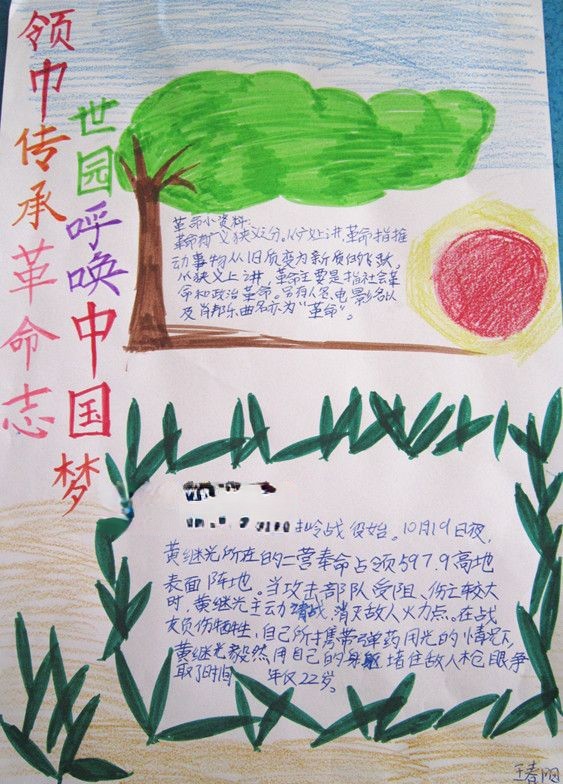 领巾传承革命志
世园呼唤中国梦
革命小资料:
革命有广义狭义之分。从广义上讲,革命指推
动事物从旧质变为新质的飞跃。
从狭义上讲,革命主要是指社会革
命和政治革命。另有人名、电影名以
及肖邦乐曲名亦为“革命”。
岭战役始。10月19日夜,
黄继光所在的二营奉命占领597.9高地
表面阵地。当攻击部队受阻、伤亡较大
时,黄继光主动请战,消灭敌人火力点。在战
友负伤牺牲,自己所携带弹药用光的情况下,
黄继光毅然用自己的身躯堵住敌人枪眼争
取了时间 年仅22岁。
王春阳